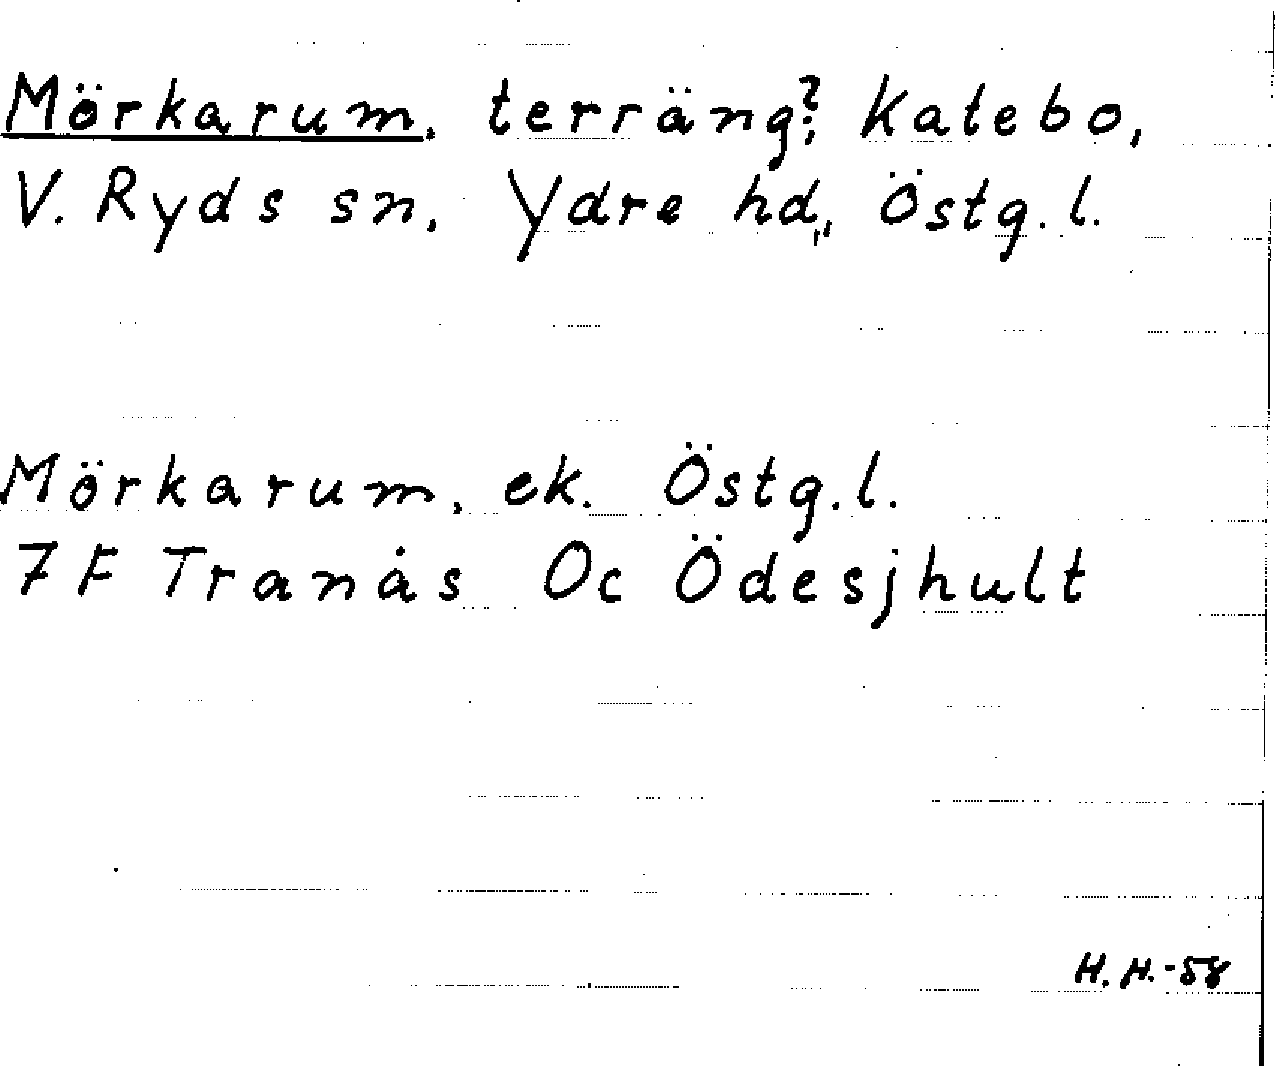 Mörkarum, terräng?, Katebo,
V. Ryds sn, Ydre hd, Östg.l.
Mörkarum, ek. Östg.l.
7F Tranås Oc Ödesjhult
H.H.-58